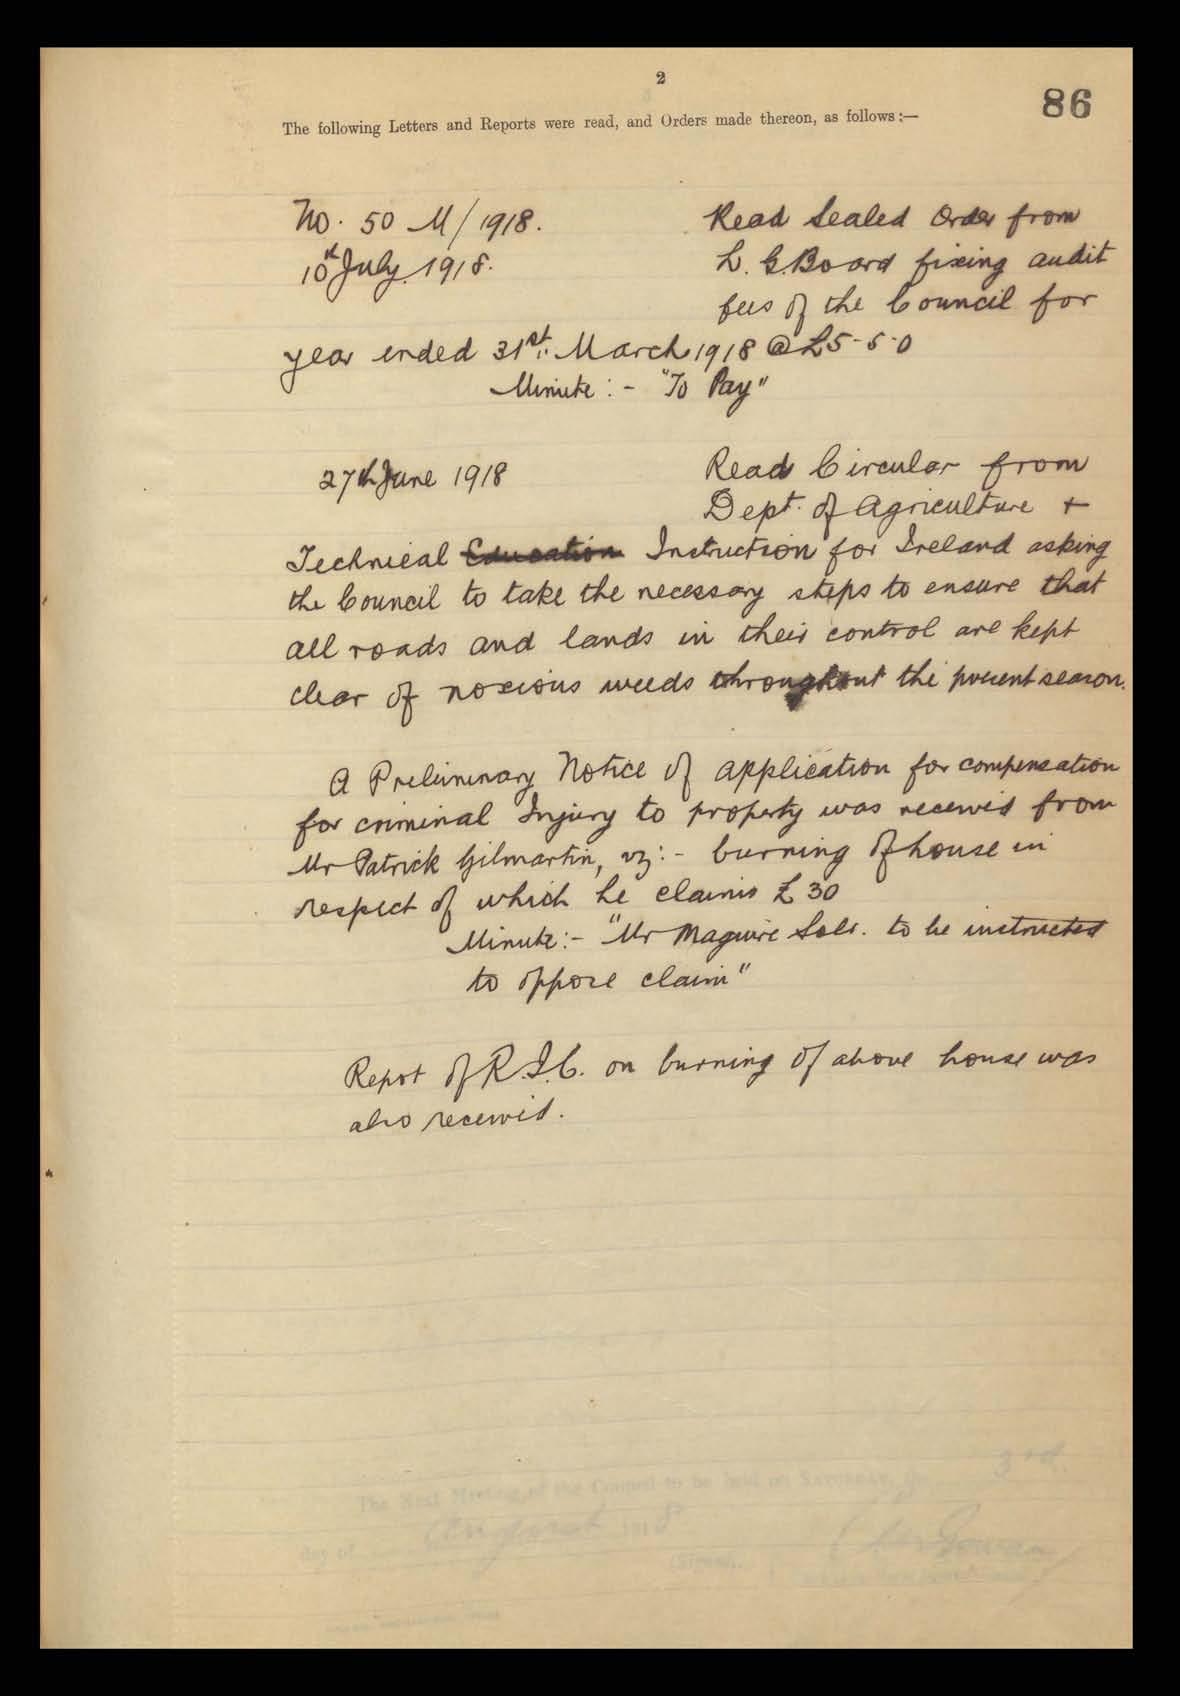 2
86
The following Letters and Reports were read, and Orders made thereon, as follows:—
No. 50 M/1918. Read Sealed Order from
10th July 1918. L. G. Board fixing audit
fees of the Council for
year ended 31st March 1918 @ £5-5-0
Minute:- "To Pay"
27th June 1918 Read Circular from
Dept. of Agriculture +
Technical Education Instruction for Ireland asking
the Council to take the necessary steps to ensure that
all roads and lands in their control are kept
clear of noxious weeds throughout the present season.
A Preliminary Notice of application for compensation
for criminal Injury to property was received from
Mr Patrick Gilmartin, viz:- burning of house in
respect of which he claims £30
Minute:- "Mr Maguire Solr. to be instructed
to oppose claim"
Repot of R.I.C. on burning of above house was
also received.
The Next Meeting of the Council to be held on Saturday, the 3rd.
day of August 1918
(Signed),